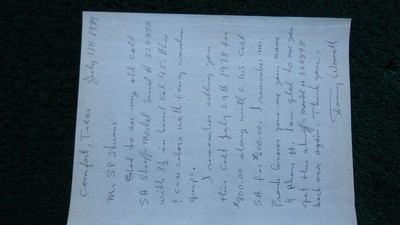 Comfort, Texas July 118 1979
Mr SP Stevens
Glad to see my old colt
SA Sheriffs Model Serial # 328898
with 3½ in barrel Cal 45. Blue
& case colors with fancy wooden
grips.
I remember selling you
this Colt July 29th 1978 for
$800.00 along with a U.S. Colt
S.A. for $600.00. I remember Mr.
Frank Graves gave me your name
& Phone #. I am glad to see you
got this sheriffs model # 328898
back once again. Thank you.
Tommy